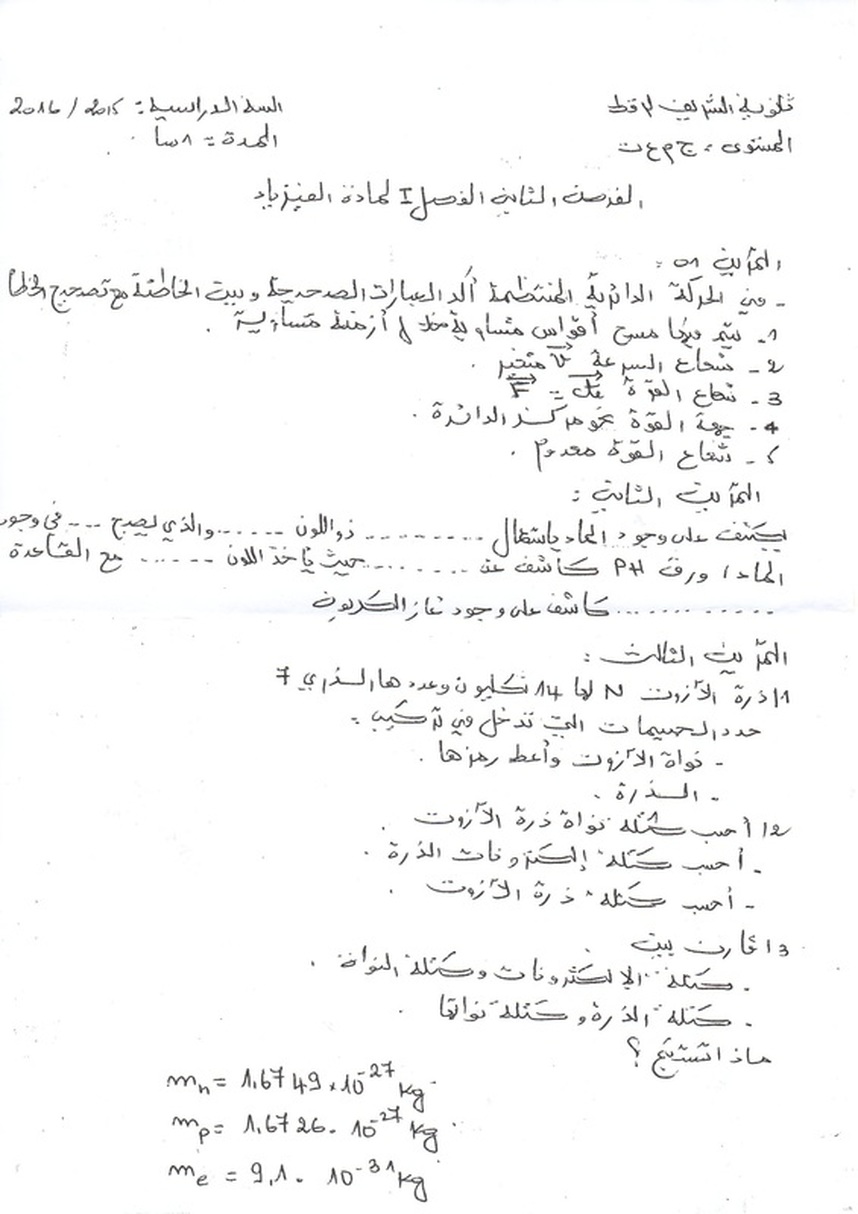 ثانوية الشريف لرقط
السنة الدراسية: 2015 / 2016
المستوى: ج م ع ت
المدة: 1 سا
الفرض الثاني الفصل I لمادة الفيزياء
التمرين 01 :
- في الحركة الدائرية المنتظمة أكد العبارات الصحيحة وبين الخاطئة مع تصحيح الخطأ
1- يتم فيها مسح أقواس متساوية خلال أزمنة متساوية .
2- شعاع السرعة v متغير .
3- شعاع القوة = F
4- جهة القوة نحو مركز الدائرة .
5- شعاع القوة معدوم .
التمرين الثاني :
يكشف على وجود الماء باستعمال .......... ذو اللون ....... والذي يصبح ... في وجود
الماء / ورق PH كاشف عن .......... حيث يأخذ اللون ...... مع القاعدة
............ كاشف على وجود غاز الكربون
التمرين الثالث :
1/ ذرة الآزوت N لها 14 نكليون وعددها الذري 7
حدد الجسيمات التي تدخل في تركيب :
- نواة الآزوت وأعط رمزها .
- الذرة .
2/ أحسب كتلة نواة ذرة الآزوت .
- أحسب كتلة إلكترونات الذرة .
- أحسب كتلة ذرة الآزوت .
3/ قارن بين
- كتلة الإلكترونات وكتلة النواة .
- كتلة الذرة وكتلة نواتها .
ماذا تستنتج ؟
mn = 1.6749 × 10^-27 kg
mp = 1.6726 . 10^-27 kg
me = 9,1 . 10^-31 kg